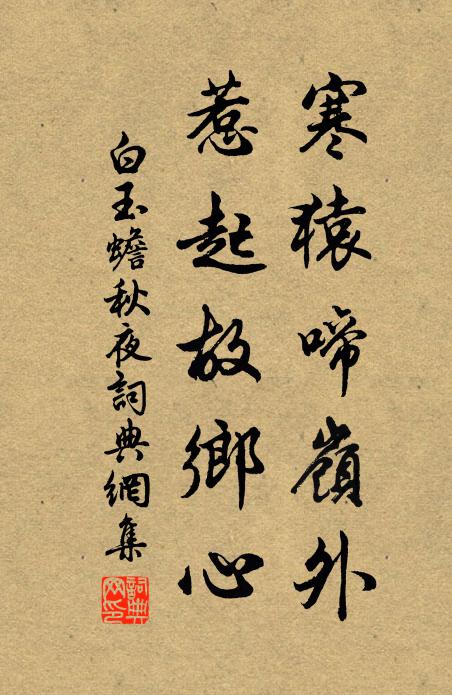 寒猿啼嶺外
惹起故鄉心
白玉蟾秋夜詞典網集
詞典網印